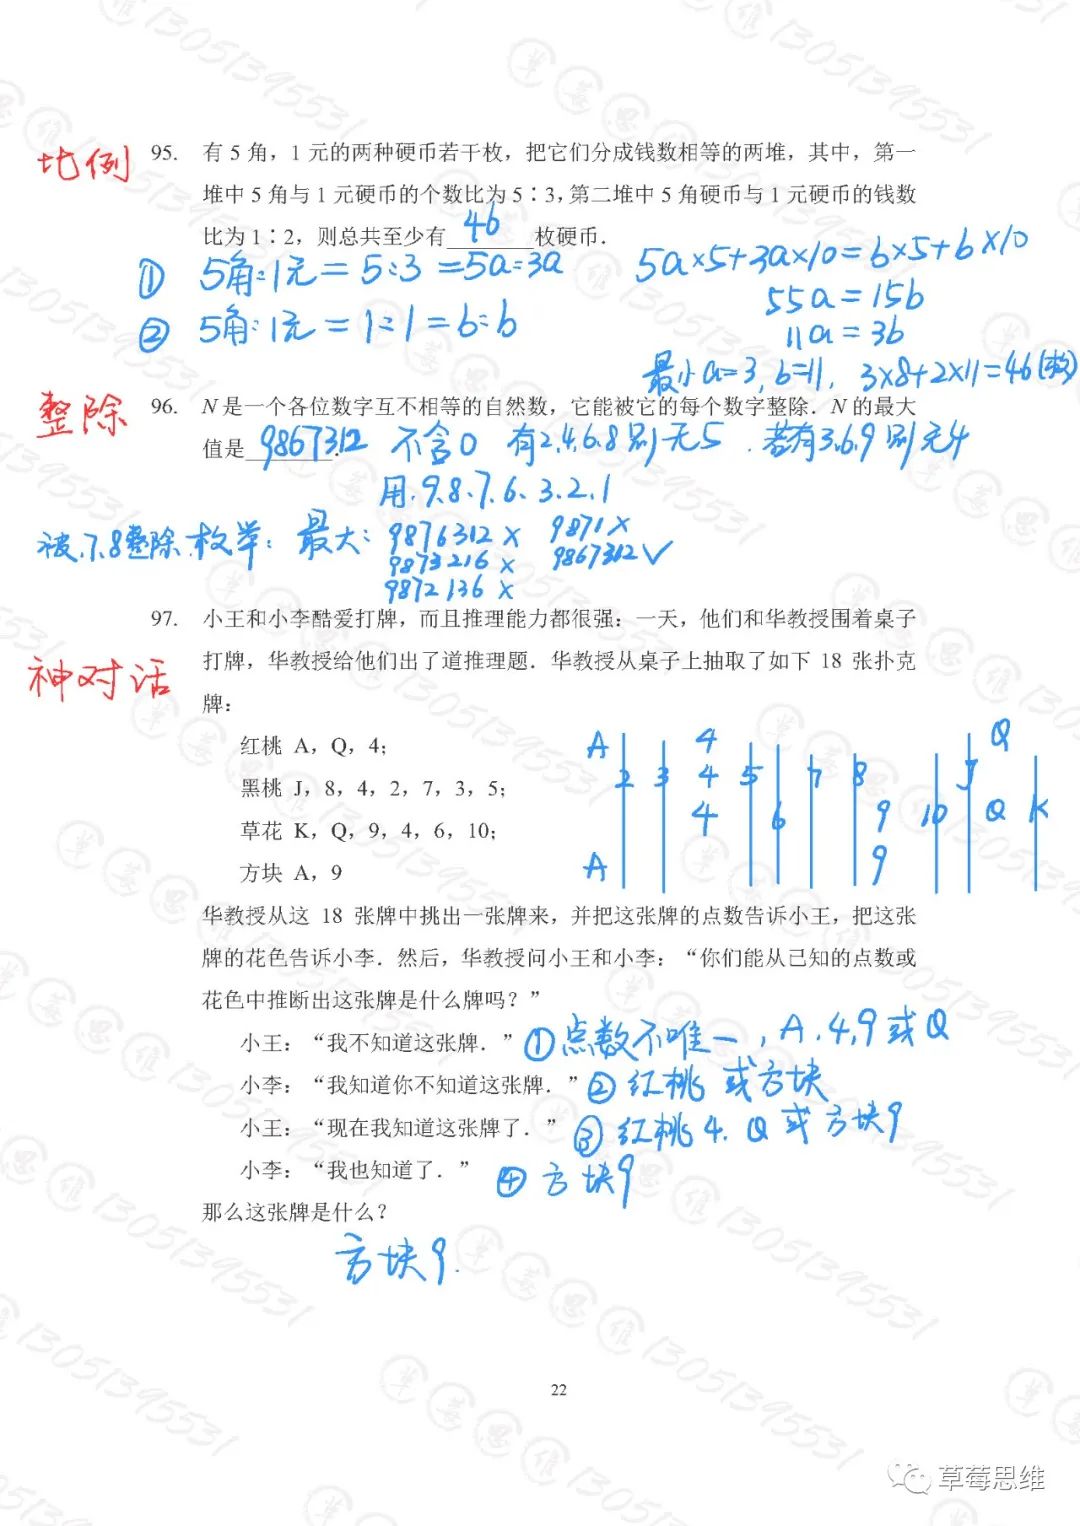 比例
95. 有 5 角，1 元的两种硬币若干枚，把它们分成钱数相等的两堆，其中，第一
堆中 5 角与 1 元硬币的个数比为 5∶3，第二堆中 5 角硬币与 1 元硬币的钱数
比为 1∶2，则总共至少有 46 枚硬币．
① 5角:1元=5:3=5a:3a
② 5角:1元=1:1=b:b
5a×5+3a×10=b×5+b×10
55a=15b
11a=3b
最小a=3,b=11, 3×8+2×11=46(枚)
整除
96. N 是一个各位数字互不相等的自然数，它能被它的每个数字整除．N 的最大
值是 9867312 .
不含0 有2.4.6.8则无5 . 若有3.6.9则无4
用.9.8.7.6.3.2.1
被.7.8整除.枚举: 最大: 9876312 × 9871×
9873216 × 9867312✓
9872136 ×
神对话
97. 小王和小李酷爱打牌，而且推理能力都很强：一天，他们和华教授围着桌子
打牌，华教授给他们出了道推理题．华教授从桌子上抽取了如下 18 张扑克
牌：
红桃 A，Q，4；
黑桃 J，8，4，2，7，3，5；
草花 K，Q，9，4，6，10；
方块 A，9
A 4 Q
2 3 4 5 7 8 J
4 6 9 10 Q K
A 9
华教授从这 18 张牌中挑出一张牌来，并把这张牌的点数告诉小王，把这张
牌的花色告诉小李．然后，华教授问小王和小李：“你们能从已知的点数或
花色中推断出这张牌是什么牌吗？”
小王：“我不知道这张牌．” ①点数不唯一, A.4,9或Q
小李：“我知道你不知道这张牌．” ②红桃 或方块
小王：“现在我知道这张牌了．” ③红桃4. Q或方块9
小李：“我也知道了．” ④方块9
那么这张牌是什么？
方块9.
22
草莓思维
草莓思维13051395531